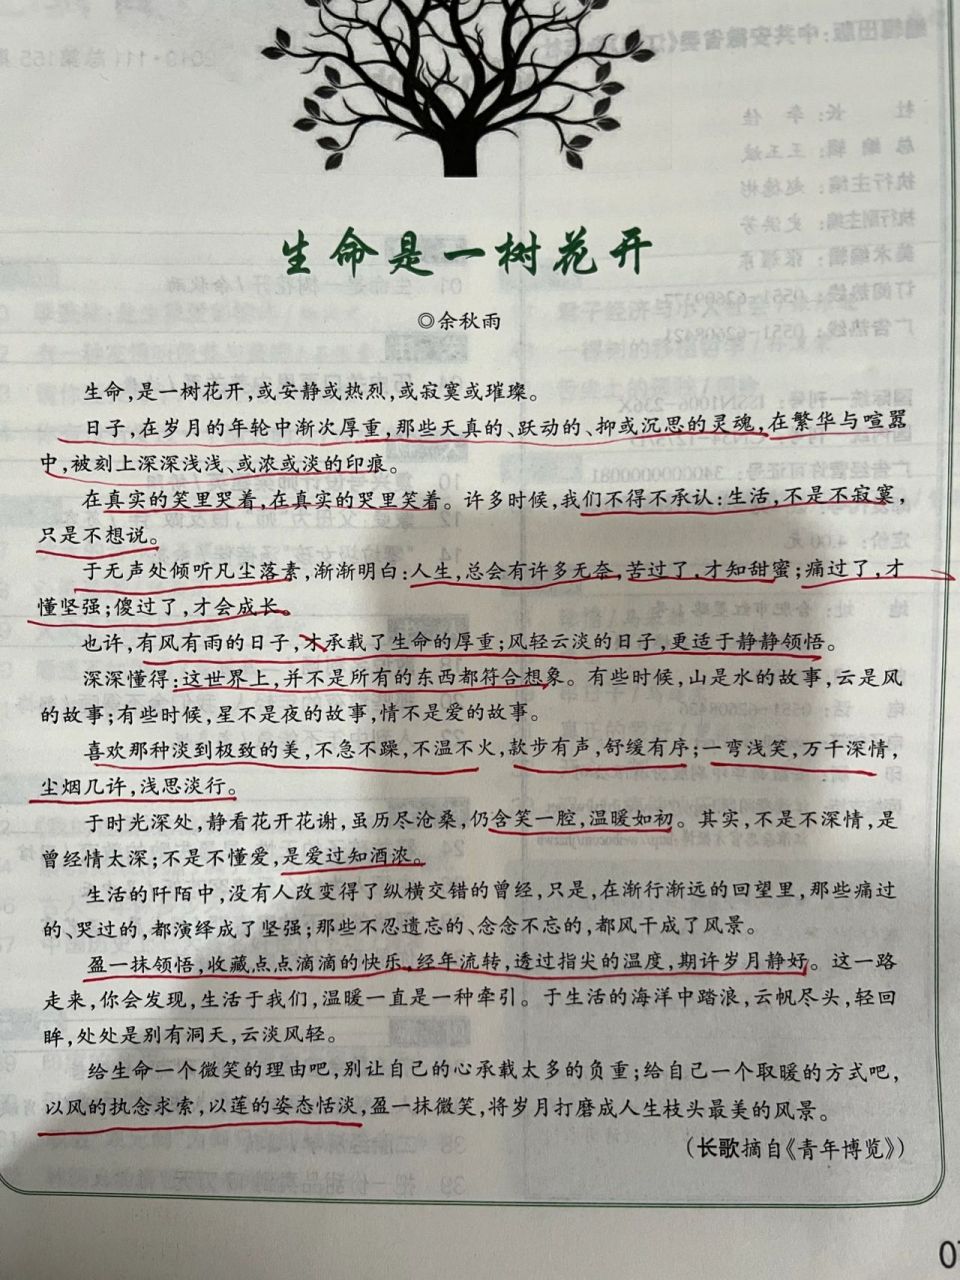 生命是一树花开
◎余秋雨
生命,是一树花开,或安静或热烈,或寂寞或璀璨。
日子,在岁月的年轮中渐次厚重,那些天真的、跃动的、抑或沉思的灵魂,在繁华与喧嚣
中,被刻上深深浅浅、或浓或淡的印痕。
在真实的笑里哭着,在真实的哭里笑着。许多时候,我们不得不承认:生活,不是不寂寞,
只是不想说。
于无声处倾听凡尘落素,渐渐明白:人生,总会有许多无奈,苦过了,才知甜蜜;痛过了,才
懂坚强;傻过了,才会成长。
也许,有风有雨的日子,才承载了生命的厚重;风轻云淡的日子,更适于静静领悟。
深深懂得:这世界上,并不是所有的东西都符合想象。有些时候,山是水的故事,云是风
的故事;有些时候,星不是夜的故事,情不是爱的故事。
喜欢那种淡到极致的美,不急不躁,不温不火,款步有声,舒缓有序;一弯浅笑,万千深情,
尘烟几许,浅思淡行。
于时光深处,静看花开花谢,虽历尽沧桑,仍含笑一腔,温暖如初。其实,不是不深情,是
曾经情太深;不是不懂爱,是爱过知酒浓。
生活的阡陌中,没有人改变得了纵横交错的曾经,只是,在渐行渐远的回望里,那些痛过
的、哭过的,都演绎成了坚强;那些不忍遗忘的、念念不忘的,都风干成了风景。
盈一抹领悟,收藏点点滴滴的快乐,经年流转,透过指尖的温度,期许岁月静好。这一路
走来,你会发现,生活于我们,温暖一直是一种牵引。于生活的海洋中踏浪,云帆尽头,轻回
眸,处处是别有洞天,云淡风轻。
给生命一个微笑的理由吧,别让自己的心承载太多的负重;给自己一个取暖的方式吧,
以风的执念求索,以莲的姿态恬淡,盈一抹微笑,将岁月打磨成人生枝头最美的风景。
(长歌摘自《青年博览》)